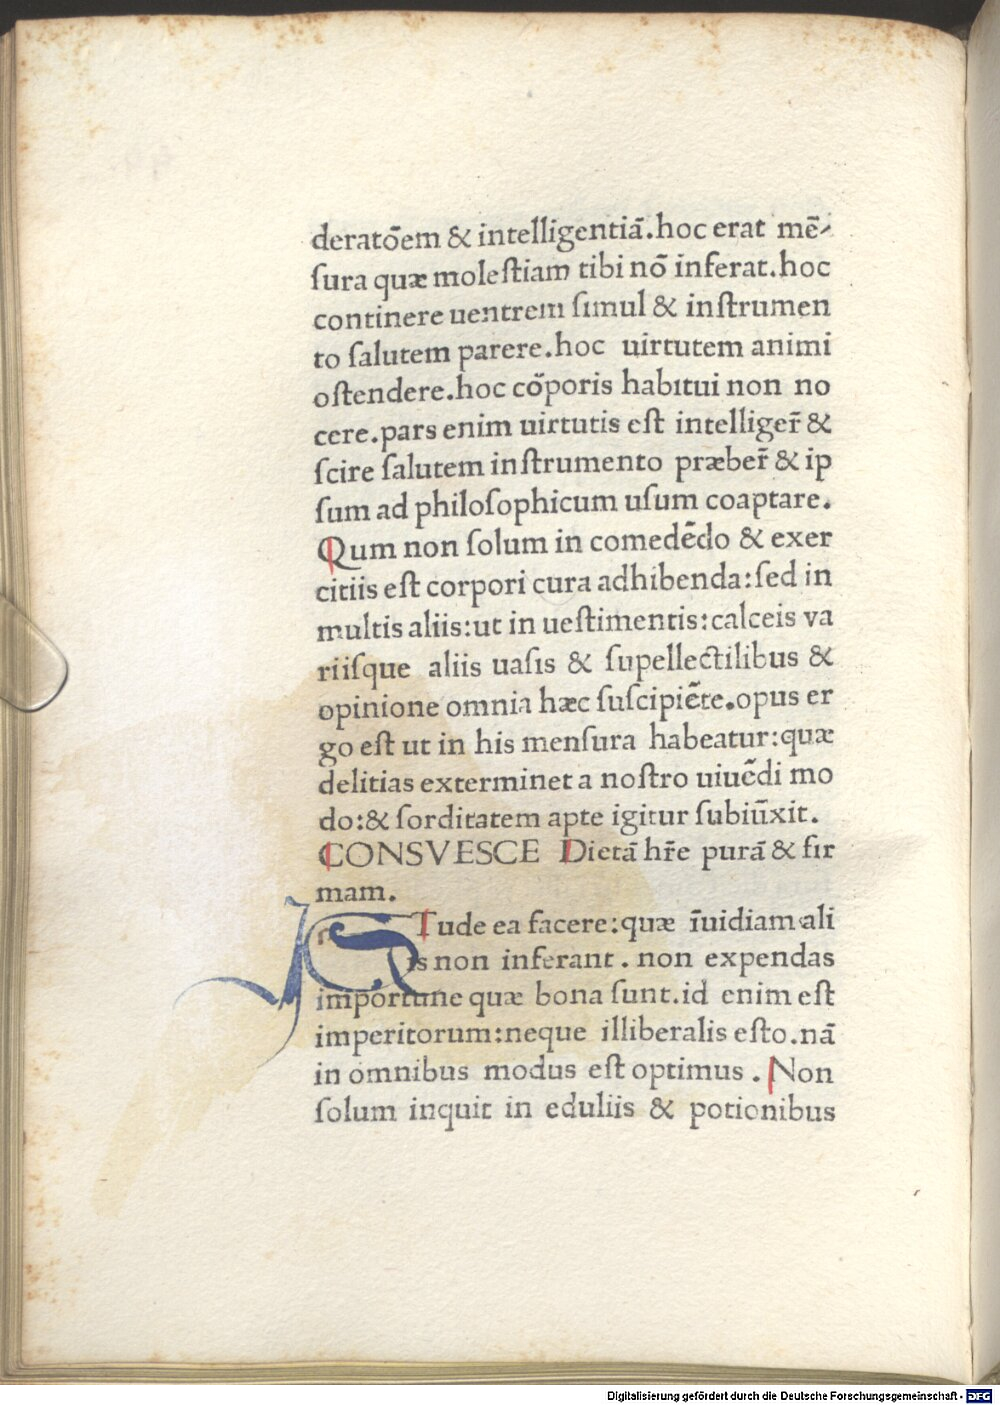 deratōem & intelligentiā.hoc erat mē-
ſura quæ moleſtiam tibi nō inferat.hoc
continere uentrem ſimul & inſtrumen
to ſalutem parere.hoc uirtutem animi
oſtendere.hoc cōporis habitui non no
cere.pars enim uirtutis eſt intelliger̄ &
ſcire ſalutem inſtrumento præber̄ & ip
ſum ad philoſophicum uſum coaptare.
Qum non ſolum in comedēdo & exer
citiis eſt corpori cura adhibenda:ſed in
multis aliis:ut in ueſtimentis:calceis va
riiſque aliis uaſis & ſupellectilibus &
opinione omnia hæc ſuſcipiēte.opus er
go eſt ut in his menſura habeatur:quæ
delitias exterminet a noſtro uiuēdi mo
do:& ſorditatem apte igitur ſubiūxit.
CONSVESCE Dietā hr̄e purā & fir
mam.
STude ea facere:quæ īuidiam ali
is non inferant . non expendas
importune quæ bona ſunt.id enim eſt
imperitorum:neque illiberalis eſto.nā
in omnibus modus eſt optimus . Non
ſolum inquit in eduliis & potionibus
Digitalisierung gefördert durch die Deutsche Forschungsgemeinschaft - DFG